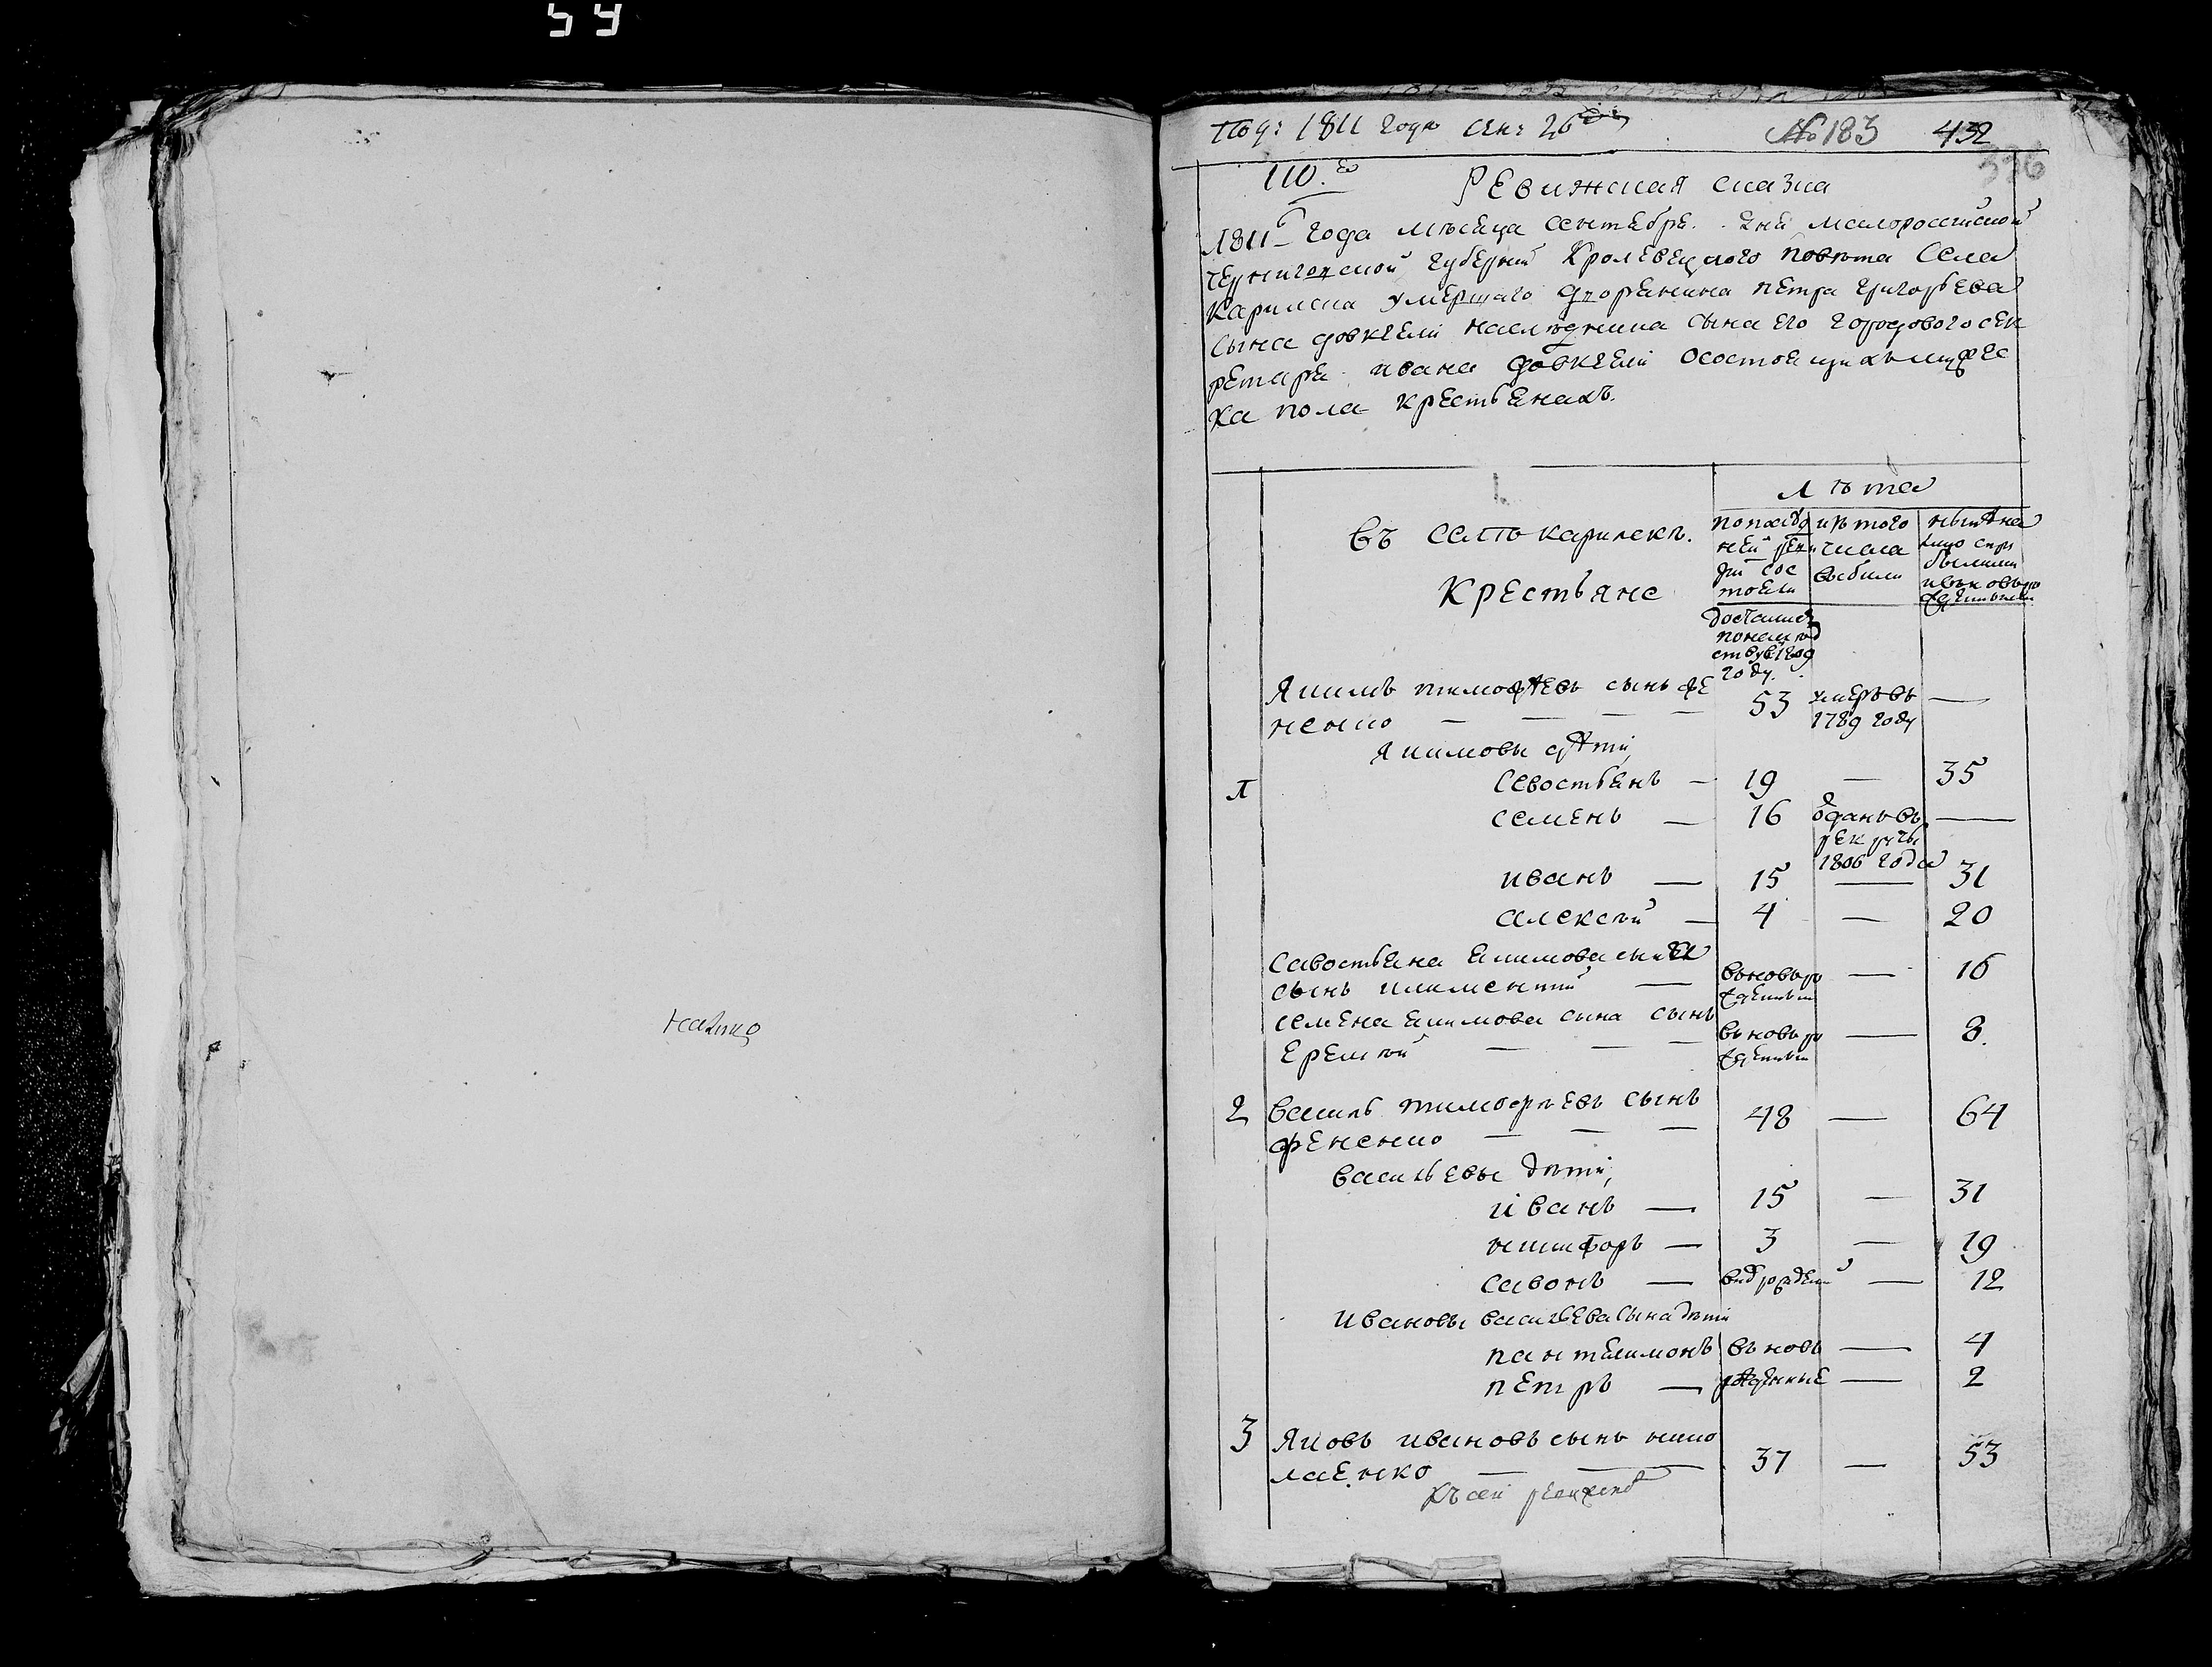 59
Под: 1811 года сен: 26
№ 183 432
336
110.е
Ревижская сказка
1811 года мѣсяца сентебре. дня малороссійской
черниговской губерніи Кролевецкого повѣта Села
Карилска умершаго дворенина петра григорьева
сына довкгели наслѣдника сына его городового сек
ретаря ивана довкгели осостоещихъ мужес
ка пола крестьенахъ.
Лѣта
въ селѣ карилскѣ.
Крестьяне
попослѣд
ней реви
зіи сос
тоели
изтого
числа
выбыли
нынѣ на
лицо
достались
по наслѣд
ству в 1809
году.
Якимъ тимофѣевъ сынъ фе
ненко 53 умеръ въ
1789 году —
Якимовы дѣти,
1 севостьенъ — 19 — 35
семенъ — 16 отданъ въ —
рекруты
1806 года
иванъ — 15 — 31
алексѣй — 4 — 20
савостьена екимова сына
сынъ климентій — вьновьро
жденный — 16
семена екимова сына сынъ
еремѣй — вьновьро
жденный — 8.
2 василь тимофѣевъ сынъ
фененко 48 — 64
васильевы дѣти,
иванъ — 15 — 31
никифоръ — 3 — 19
савонъ — — 12
Ивановы васильева сына дѣти
пантелимонъ вьновь — 4
петръ — рожденные — 2
3 Яковъ ивановъ сынъ нико
лаенко 37 — 53
Къ сей